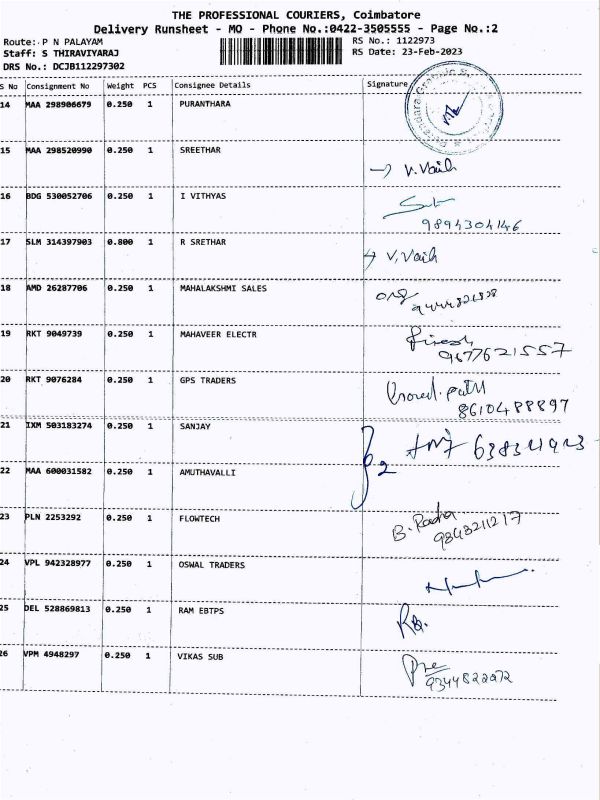 THE PROFESSIONAL COURIERS, Coimbatore
Delivery Runsheet - MO - Phone No.:0422-3505555 - Page No.:2
Route: P N PALAYAM
RS No.: 1122973
Staff: S THIRAVIYARAJ
RS Date: 23-Feb-2023
DRS No.: DCJB112297302
S No Consignment No Weight PCS Consignee Details Signature
14 MAA 298906679 0.250 1 PURANTHARA
15 MAA 298520990 0.250 1 SREETHAR
16 BDG 530052706 0.250 1 I VITHYAS
9894304146
17 SLM 314397903 0.800 1 R SRETHAR
18 AMD 26287706 0.250 1 MAHALAKSHMI SALES
19 RKT 9049739 0.250 1 MAHAVEER ELECTR
9677621557
20 RKT 9076284 0.250 1 GPS TRADERS
8610488897
21 IXM 503183274 0.250 1 SANJAY
22 MAA 600031582 0.250 1 AMUTHAVALLI
2
23 PLN 2253292 0.250 1 FLOWTECH B. Radha
9843211217
24 VPL 942328977 0.250 1 OSWAL TRADERS
25 DEL 528869813 0.250 1 RAM EBTPS
26 VPM 4948297 0.250 1 VIKAS SUB